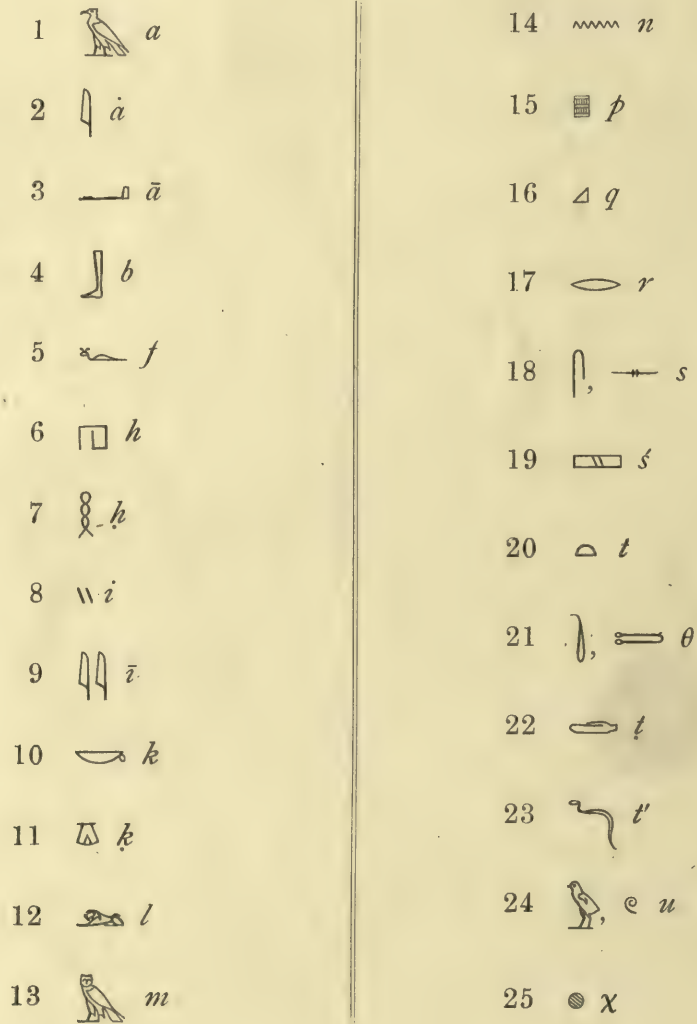 1 𓄿 a
2 𓇋 ȧ
3 𓂝 ā
4 𓃀 b
5 𓆑 f
6 𓉔 h
7 𓎛 ḥ
8 𓏭 i
9 𓇌 ī
10 𓎡 k
11 𓎼 ḳ
12 𓃭 l
13 𓅓 m
14 𓈖 n
15 𓊪 p
16 𓈎 q
17 𓂋 r
18 𓋴, 𓊃 s
19 𓈙 ś
20 𓏏 t
21 𓍘, 𓍿 θ
22 𓂧 ṭ
23 𓆓 t'
24 𓅱, 𓏲 u
25 𓐍 χ